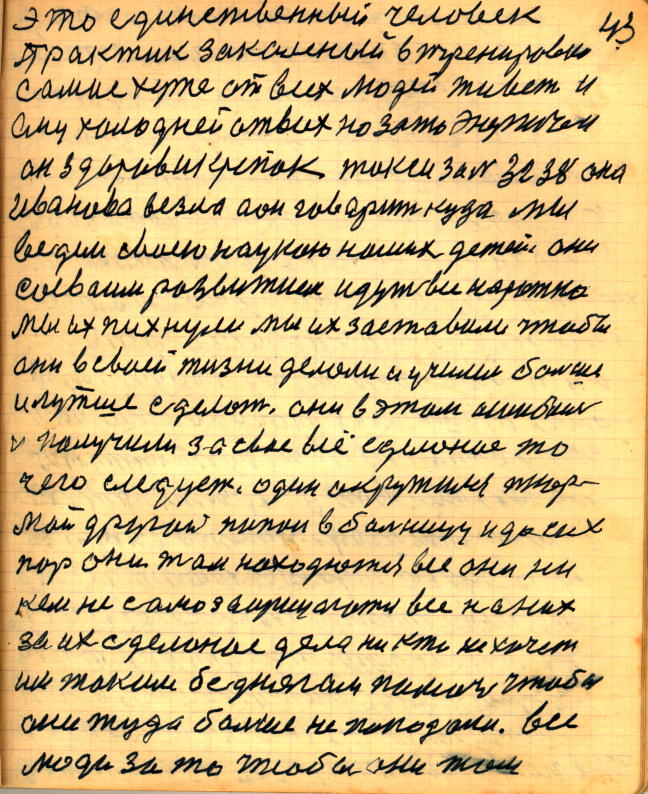 это единственный человек 43
практик закаленый в тренировки
самые хуже от всех людей живет и
ему холодней от всих но зато
он здоров и крепок такси за № 3238 она
Иванова везла а он говарит куда мы
ведем своею наукою наших детей. они
своеим развитием идут все
мы их пихнули мы их заставили чтобы
они в своей жизни делоли и училис болше
и лутше сделат. они в этом
и получили за свое всё сделоное то
чего следует. один окружился тюр-
мой другой попол в болницу и до сих
пор они там находются все они ни
кем не самозащищаются все на них
за их сделоное дела никто не хочет
им таким беднягам помоч чтобы
они туда болше не поподали. все
люди за то чтобы они там